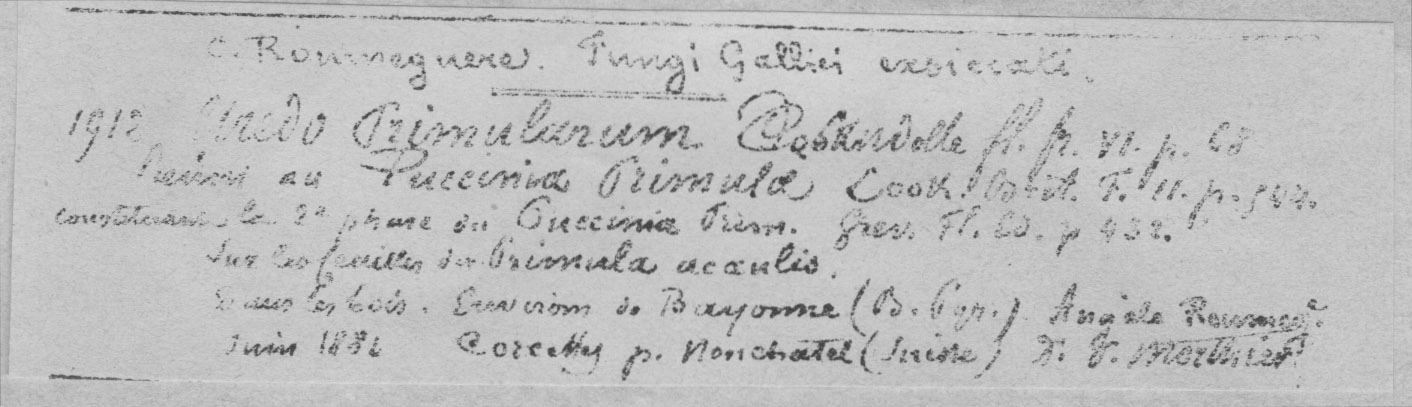 C. Roumeguere. Fungi Gallici exsiccati.
1912 Uredo Primularum fl. fr. VI. p. 68
Réuni au Puccinia Primula Cook. Brit. F. II. p.
constituant la 2e phase du Puccinia Prim. Grev. Fl. Ed. p 432.
Sur les feuilles du Primula acaulis.
Dans les bois. Environs de Bayonne (B. Pyr.) Angele Roumeg.
Juin 1881 p. (Suisse) Morthier